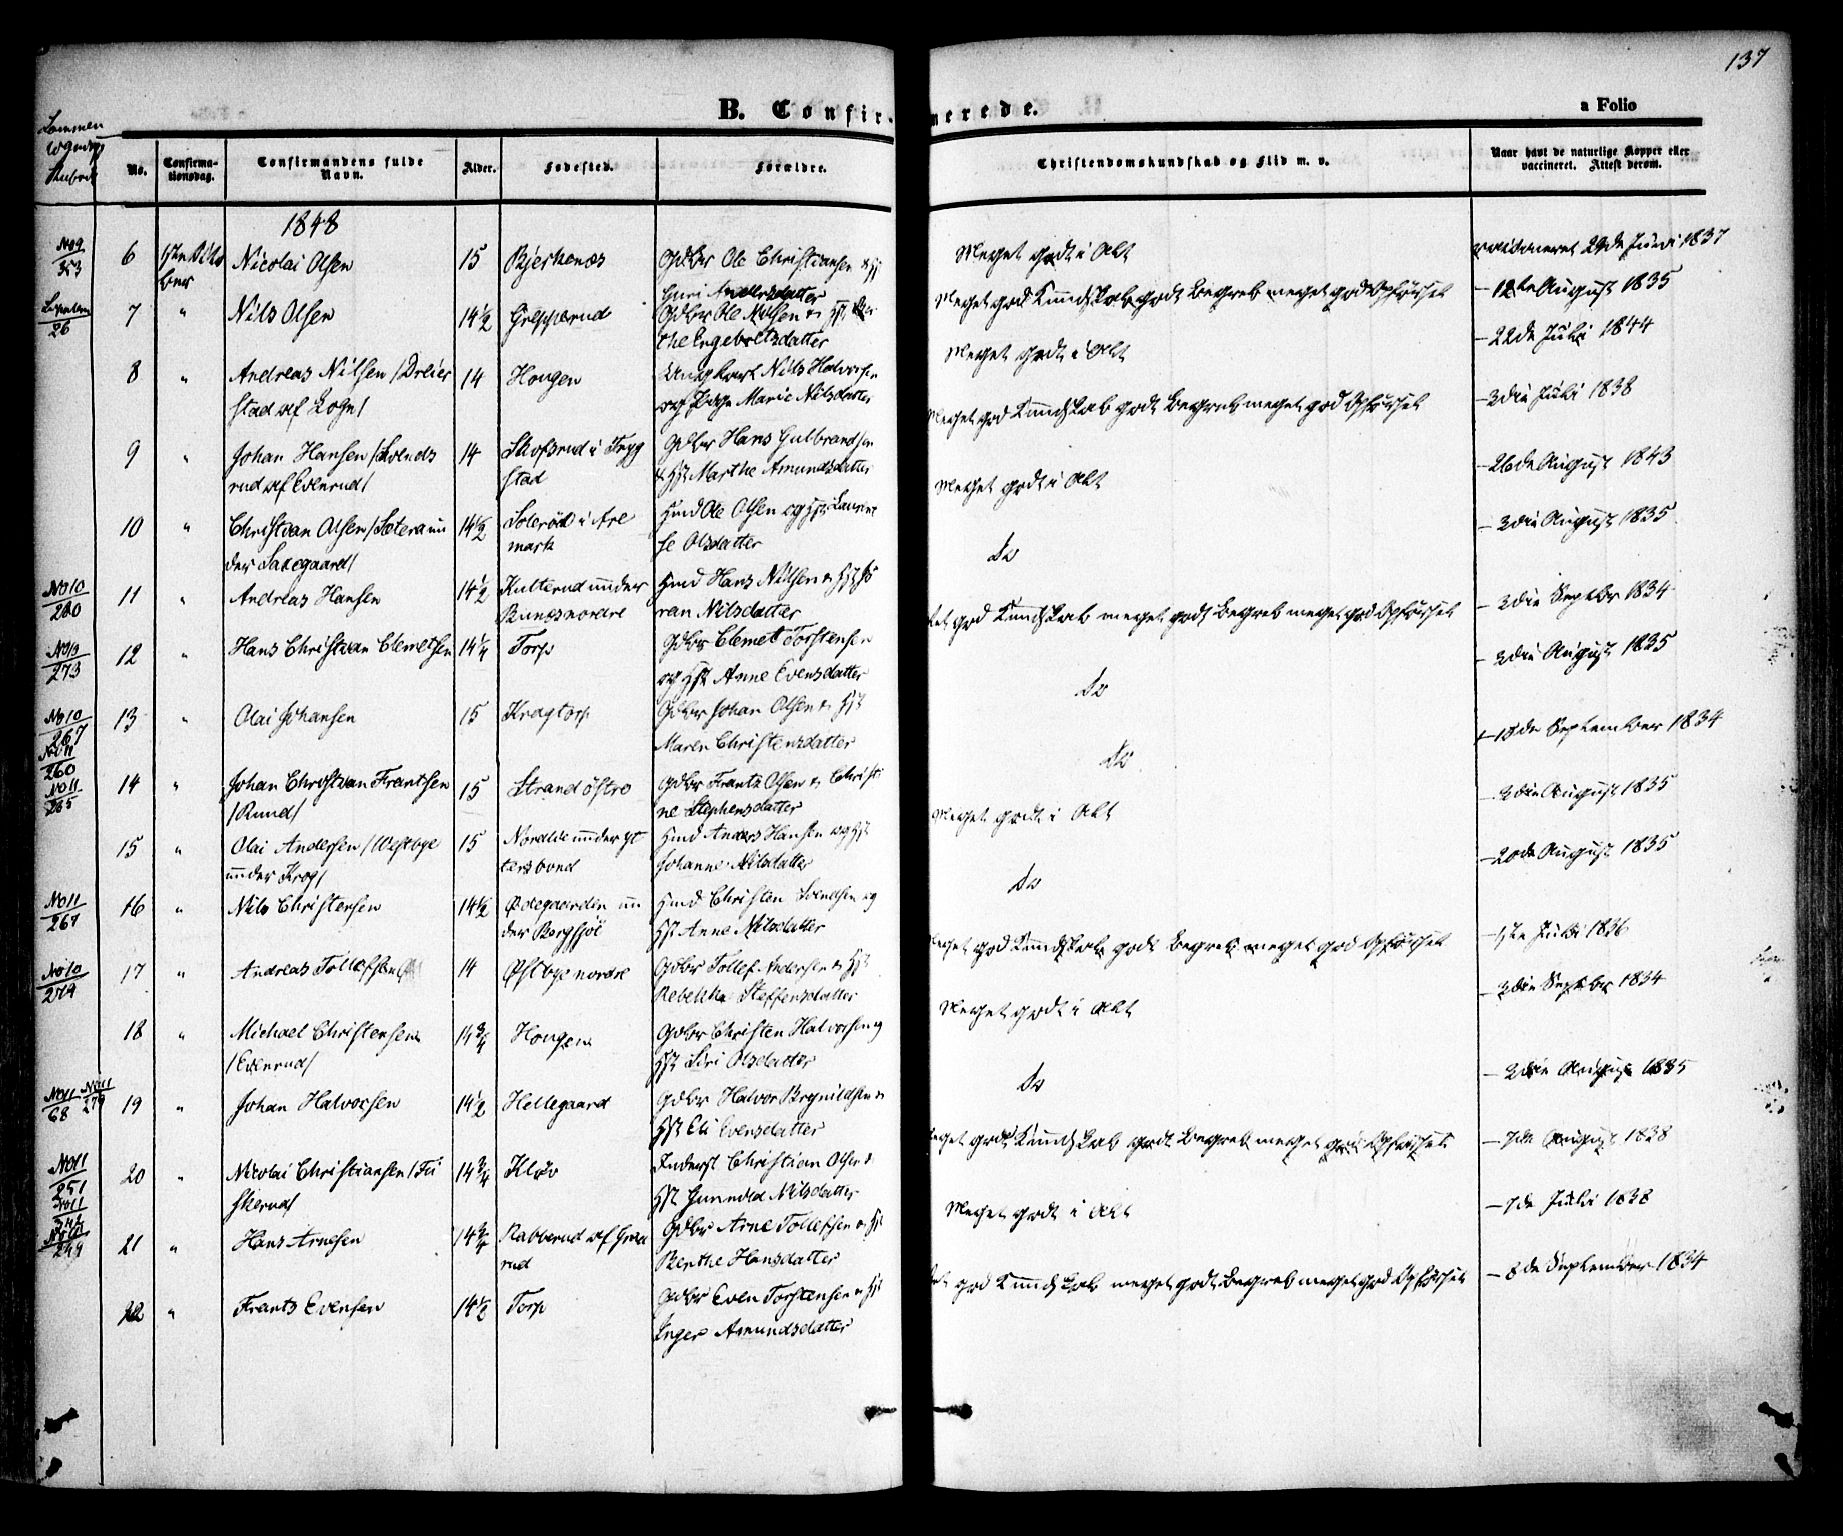 137
B. Confirmerede.
a Folio
No.
Confirmationsdag.
Confirmandens fulde Navn.
Alder.
Fødested.
Forældre.
Christendomskundskab og Flid m. v.
Naar havt de naturlige Kopper eller vaccineret. Attest derom.
1848
No 9 / 353
6
Nicolai Olsen
15
Bjerkenæs
Gdbr Ole Christiansen & Hst
Guri Andersdatter
Meget godt i Alt
vaccineret 29de Juni 1837
26
7 " Nils Olsen
14 1/2
Grepperud
Gdbr Ole Nilsen & Hst
the Engebretsdatter
Meget god Kundskab godt Begreb meget god Opførsel
- 12te August 1835
8 " Andreas Nilsen /Dreier
stad
14
Hougen
Ungkarl Nils Halvorsen
og Pige Marie Nilsdatter
Meget godt i Alt
- 22de Juli 1844
9 " Johan Hansen /Svends
rud af Evenrud/
14
Skofsrud i Tryg
stad
Gdbr Hans Gulbrandsen
& Hst Marthe Amundsdatter
Meget god Kundskab godt Begreb meget god Opførsel
- 3die Juli 1838
10 " Christian Olsen /Sætera un
der Saxegaard/
14 1/2
Solerød i Are
mark
Hmd Ole Olsen og Hst Laurent
se Olsdatter
Meget godt i Alt
- 26de August 1843
No 10 / 280
11 " Andreas Hansen
14 1/2
Kulterud under
Bunæs nordre
Hmd Hans Nilsen & Hst Sö
ren Nilsdatter
Do
- 3die August 1835
No 10 / 273
12 " Hans Christian Clemetsen
14 1/4
Torp
Gdbr Clemet Torstensen
og Hst Anne Evensdatter
god Kundskab meget godt Begreb meget god Opførsel
- 3die Septbr 1834
No 10 / 267
13 " Olai Johansen
15
Kragtorp
Gdbr Johan Olsen & Hst
Maren Christensdatter
Do
- 3die August 1835
No 11 / 260
No 11 / 265
14 " Johan Christian Frantsen
/Rund/
15
Strand östre
Gdbr Frantz Olsen & Christi
ne Stephensdatter
Do
- 18de September 1834
15 " Olai Andersen /Westbye
under Krog/
15
under Yt
tersbond
Hmd Anders Hansen og Hst
Johanne Nilsdatter
Meget godt i Alt
- 3die August 1835
No 11 / 267
16 " Nils Christensen
14 1/2
Ödegaarden un
der Bergsjöe
Hmd Christen Svendsen og
Hst Anne Nilsdatter
Do
- 20de August 1835
No 10 / 279
17 " Andreas Tollefsen
14
Østbye nordre
Gdbr Tollef Andersen & Hst
Rebekka Steffensdatter
Meget god Kundskab godt Begreb meget god Opførsel
- 1ste Juli 1836
18 " Michael Christensen
/Evenrud/
14 3/4
Hougen
Gdbr Christen Halvorsen og
Hst Siri Olsdatter
Meget godt i Alt
- 3die Septbr 1834
No 11 / 68 No 11 / 279
19 " Johan Halvorsen
14 1/2
Hellegaard
Gdbr Halvor Brynildsen &
Hst Eli Evensdatter
Do
- 3die August 1835
No 11 / 251
20 " Nicolai Christiansen /Fu
skerud/
14 3/4
Kløv
Inderst Christian Olsen &
Hst Gunnild Nilsdatter
Meget godt Kundskab godt Begreb meget god Opførsel
- 7de August 1838
249
21 " Hans Arnesen
14 3/4
Rabberud af
rud
Gdbr Arne Tollefsen & Hst
Berthe Hansdatter
Meget godt i Alt
- 7de Juli 1838
22 " Frants Evensen
14 1/2
Torp
Gdbr Even Torstensen & Hst
Inger Amundsdatter
god Kundskab meget godt Begreb meget god Opførsel
- 8de September 1834